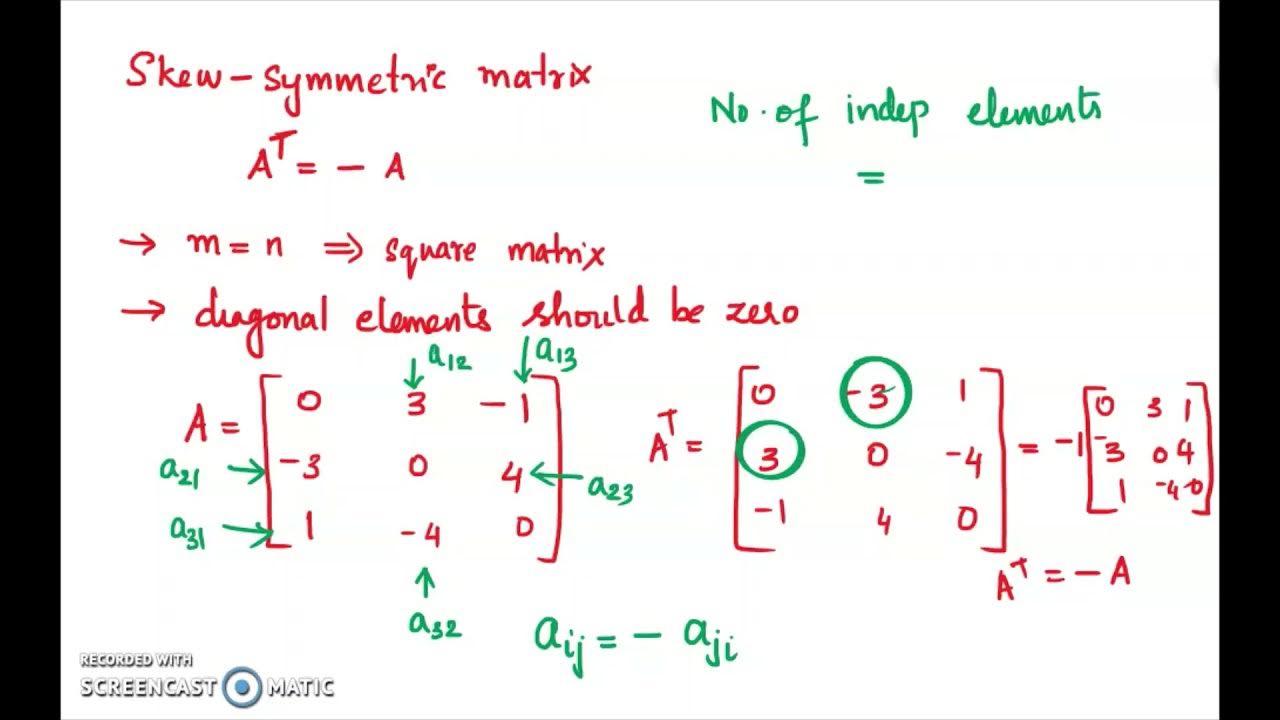 Skew-symmetric matrix
No. of indep elements
=
Aᵀ = - A
→ m = n ⇒ square matrix
→ diagonal elements should be zero
a₁₂ a₁₃
A = [ 0 3 -1
-3 0 4
1 -4 0 ]
a₂₁
a₃₁
a₂₃
a₃₂
Aᵀ = [ 0 -3 1
3 0 -4
-1 4 0 ]
= -1 [ 0 3 1
-3 0 4
1 -4 0 ]
Aᵀ = - A
aᵢⱼ = - aⱼᵢ
RECORDED WITH
SCREENCAST MATIC